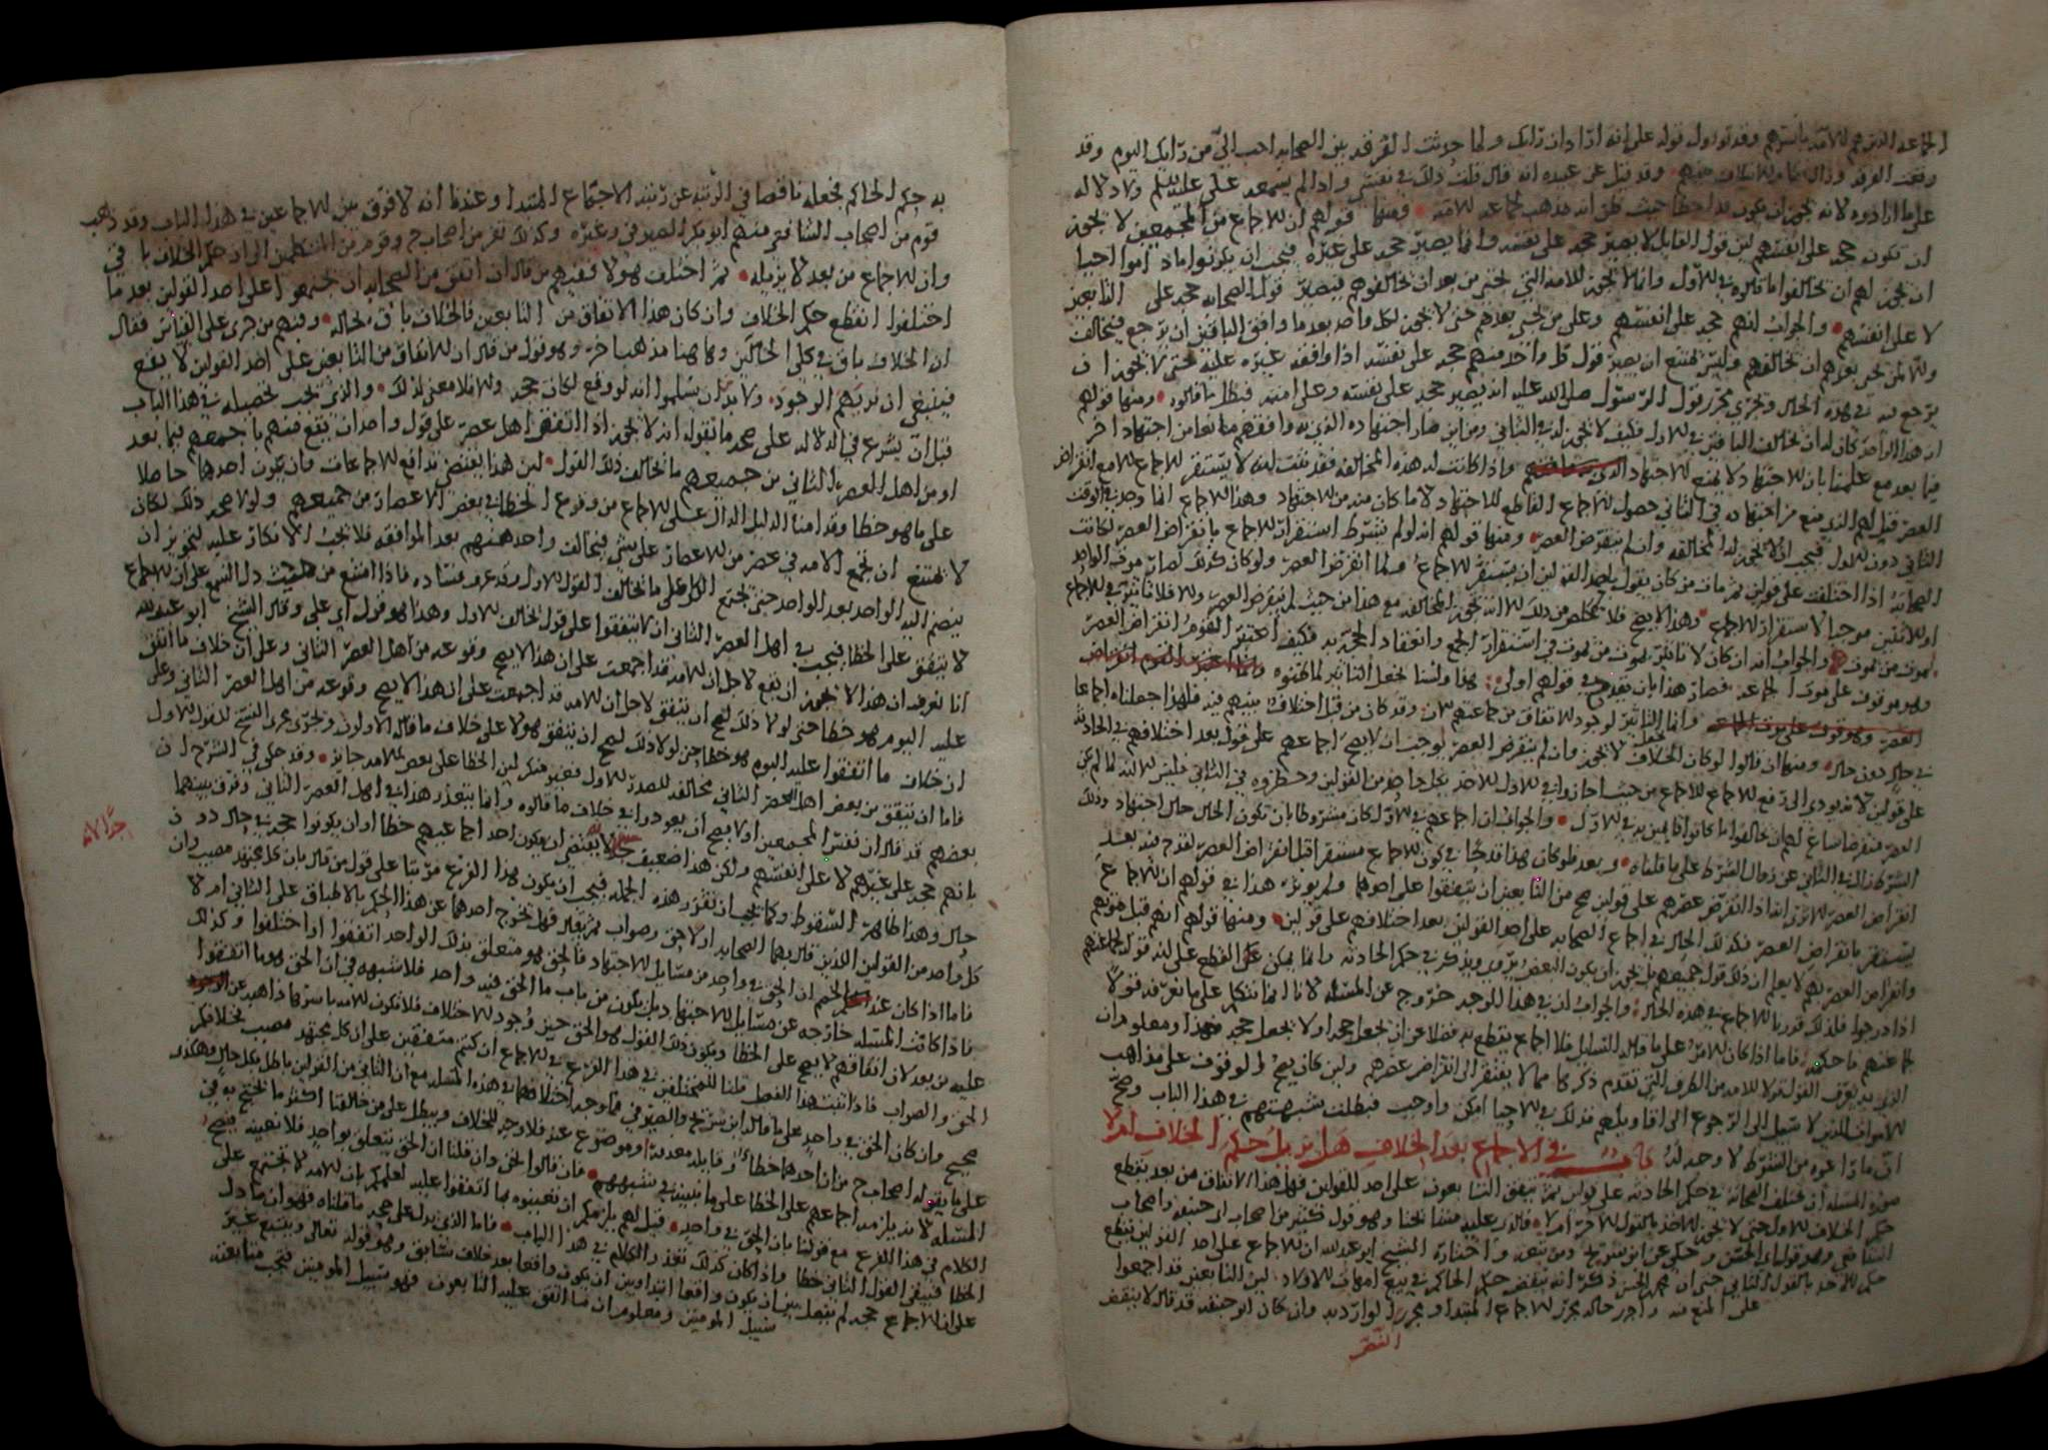 الجماعه الذين هم الامه باسرهم وقد تووول قوله على انه اذا دان ذاك ولما حدثت الفرقه بين الصحابه احب الي من رايك اليوم وقد
وقعت الفرقه وزال وقد قيل عن عبيده انه قال قلت ذلك في نفسي واذا لم يسمعه علي عليه السلم ولا دلاله
على ما ارادوه لانه يجوز ان يكون قد اخطا حيث ظن انه مذهب لجماعه الامه ومنها قولهم ان الاجماع من المجمعين لا يجوز
ان تكون حجه على انفسهم لان قول القايل لا يصير حجه على نفسه وانما يصير حجه على غيره فيجب ان يكونوا ما داموا احيا
ان يجوز لهم ان يخالفوا ما قالوه في الاول وانما لا يجوز للامه التي تجي من بعد ان يخالفوهم فيصير قول الصحابه حجه على التابعين
لا على انفسهم والجواب انهم حجه على انفسهم وعلى من يجي بعدهم حتى لا يجوز لكل واحد بعد ما وافق الباقين ان يرجع فيخالف
ولا لمن يجي بعدهم ان يخالفهم وليس يمتنع ان يصير قول كل واحد منهم حجه على نفسه اذا وافقه غيره عليه حتى لا يجوز ان
يرجع عنه في هذه الحال ويجري مجرى قول الرسول صلى الله عليه انه يصير حجه على نفسه وعلى امته فبطل ما قالوه ومنها قولهم
ان هذا الواحد كان له ان يخالف الباقين في الاول فكيف لا يجوز له في الثاني ومن اين صار اجتهاده الذي به وافقهم مانعا من اجتهاد اخر
فيما بعد مع علمنا بان الاجتهاد لا يمنع الاجتهاد واذا كانت له هذه المخالفه فقد ثبت انه لا يستقر الاجماع الا مع انقراض
العصر قيل لهم الذي منع من اجتهاده في الثاني حصول الاجماع القاطع للاجتهاد لا ما كان منه من الاجتهاد وهذا الاجماع انما وجد في الوقت
الثاني دون الاول فيجب الا يجوز له المخالفه وان لم ينقرض العصر ومنها قولهم انه لو لم يشترط استقرار الاجماع بانقراض العصر لكانت
الصحابه اذا اختلفت على قولين ثم مات من كان يقول باحد القولين ان يستقر الاجماع ولما انقرض العصر ولو كان كذلك لصار موت الواحد
او الاثنين موجبا لاستقرار الاجماع وهذا لا يصح فلا مخلص من ذلك الا انه تجوز المخالفه مع هذا من حيث لم ينقرض العصر والا فلا تاثير في الاجماع
لموت من يموت والجواب انه ان كان لا تاثير لموت من يموت في استقرار الجمع وانعقاد الحجه به فكيف اعتبر القوم انقراض العصر
وهو موقوف على موت الجماعه فصار هذا بان يقدح في قولهم اولى هذا ولسنا نجعل التاثير لما ظنوه وانما اعتبر القوم انقراض
العصر وهو موقوف على موت الجماعه وانما نجعل التاثير لوجود الاتفاق من جماعتهم الان وقد كان من قبل اختلاف بينهم فيه فلهذا جعلناه اجماعا
في حال دون حال ومنها ان قالوا لو كان الخلاف لا يجوز وان لم ينقرض العصر لوجب ان لا يصح اجماعهم على قول بعد اختلافهم في الحادثه
على قولين لانه يودي الى دفع الاجماع للاجماع من حيث اجازوا في الاول الاخذ بكل واحد من القولين وحظروه في الثاني فليس الا انه لما لم يكن
العصر منقرضا ساغ لهم ان يخالفوا ما كانوا قايلين به في الاول والجواب ان اجماعهم في الاول كان مشروطا بان تكون الحال حال اجتهاد وذلك
الشرط زال في الثاني عن زوال الشرط على ما قلناه وبعد فلو كان هذا قدحا في كون الاجماع مستقرا قبل انقراض العصر لقدح فيه بعد
انقراض العصر الاول لانه اذا انقرض عصرهم على قولين صح من التابعين ان يتفقوا على احدهما ولم يوثر هذا في قولهم ان الاجماع
يستقر بانقراض العصر فكذلك الحال في اجماع الصحابه على احد القولين بعد اختلافهم على قولين ومنها قولهم انهم قبل موتهم
وانقراض العصر بهم لا يعلم ان ذلك قول جميعهم بل يجوز ان يكون البعض يروي ويذكر في حكم الحادثه وانما يمكن القطع على انه قول جماعتهم
اذا درجوا فلذلك قدرنا الاجماع في هذه الحال والجواب ان في هذا الوجه خروج عن المسئله لانا انما نتكلم على ما نعرفه قولا
لجماعتهم ما حكمه فاما اذا كان الامر على ما قاله السايل فلا اجماع يقطع به فضلا عن ان يجعل حجه او لا يجعل حجه فهذا ومعلوم ان
الذي به يعرف القول قولا للامه من الطرق التي تقدم ذكرها مما لا يفتقر الى انقراض عصرهم ولين كان يصح الوقوف على مذاهب
الاموات الذين لا سبيل الى الرجوع الى اقاويلهم فذلك في الاحيا امكن واوجب فبطلت شبهتهم في هذا الباب وصح
ان ما ادعوه من الشرط لا وجه له في الاجماع بعد الخلاف هل يزيل حكم الخلاف ام لا
صورة المسئله ان تختلف الصحابه في حكم الحادثه على قولين ثم يتفق التابعون على احد القولين فهل هذا الاتفاق من بعد يقطع
حكم الخلاف الاول حتى لا يجوز الاخذ بالقول الاخر ام لا فالذي عليه مشايخنا وهو قول كثير من اصحاب ابي حنيفه واصحاب
الشافعي وهو قول ابي الحسن وحكي عن ابن سريج ومن تبعه واختاره الشيخ ابو عبد الله ان الاجماع على احد القولين يقطع
حكم الاخذ بالقول الثاني حتى ان محمد بن الحسن ذكر انه ينقض حكم الحاكم في بيع امهات الاولاد لان التابعين قد اجمعوا
على المنع منه واجري حاله مجرى الاجماع المبتدا ومجرى الوارد به وان كان ابو حنيفه قد قال لا ينقض
به حكم الحاكم فجعله ناقصا في الرتبه عن رتبه الاجماع المبتدا وعندنا انه لا فرق بين الاجماعين في هذا الباب وقد ذهب
قوم من اصحاب الشافعي منهم ابو بكر الصيرفي وغيره وكذلك نفر من اصحاب ح وقوم من المتكلمين الى ان حكم الخلاف باق
وان الاجماع من بعد لا يزيله ثم اختلف هولا فمنهم من قال ان اتفق من الصحابه ان يجتمعوا على احد القولين بعد ما
اختلفوا انقطع حكم الخلاف وان كان هذا الاتفاق من التابعين فالخلاف باق بحاله ومنهم من جرى على القياس فقال
ان الخلاف باق في كلي الحالين وهاهنا مذهب اخر وهو قول من قال ان الاتفاق من التابعين على احد القولين لا يقع
فينبغي ان نريهم الوجود ولا بد ان يسلموا انه لو وقع لكان حجه والا فلا معنى لذلك والذي يجب تحصيله في هذا الباب
قبل ان يشرع في الدلاله على صحه ما نقوله انه لا يجوز اذا اتفق اهل عصر على قول واحد ان يقع منهم باجمعهم فيما بعد
او من اهل العصر الثاني من جميعهم ما يخالف ذلك القول لان هذا يقتضي تدافع الاجماعات وان يكون احدهما حاصلا
على ما هو خطا وقد امنا الدليل الدال على الاجماع من وقوع الخطا في بعض الاعصار من جميعهم ولولا صحه ذلك لكان
لا يمتنع ان تجمع الامه في عصر من الاعصار على شي فيخالف واحد منهم بعد الموافقه فلا يجب الانكار عليه لتجويز ان
ينضم اليه الواحد بعد الواحد حتى يجتمع الكل على ما يخالف القول الاول وقد عرف فساده فاذا امتنع من حيث دل السمع على ان الاجماع
لا يتفق على الخطا فيجب في اهل العصر الثاني ان لا يتفقوا على قول يخالف الاول وهذا هو قول ابي علي وقال الشيخ ابو عبد الله
انا نعرف ان هذا لا يجوز ان يقع لاجل ان الامه قد اجمعت على ان هذا لا يصح وقوعه من اهل العصر الثاني وعلى ان خلاف ما اتفق
عليه اليوم هو خطا حتى لولا ذلك لصح ان يتفق لاجل ان الامه قد اجمعت على ان هذا لا يصح وقوعه من اهل العصر الثاني وعلى
ان خلاف ما اتفقوا عليه اليوم هو خطا حتى لولا ذلك لصح ان يتفق هولا على خلاف ما قاله الاولون ويجري مجرى النسخ للقول الاول
فاما ان يتفق من بعض اهل العصر الثاني مخالفه للصدر الاول فغير منكر لان الخطا على بعض الامه جائز وقد حكي في الشرح ان
بعضهم قد قال ان نفس المجمعين اولا يصح ان يعودوا في خلاف ما قالوه وانما يتعذر هذا في اهل العصر الثاني وفرق بينهما
بانهم حجه على غيرهم لا على انفسهم ولكن هذا ضعيف لانه يقتضي ان يكون احد اجماعيهم خطا او ان يكونوا حجه في حال دون
حال وهذا ظاهر السقوط وكما يجب ان تقرر هذه الجمله فيجب ان يكون هذا الفرع مرتبا على قول من قال بان كل مجتهد مصيب وان
كل واحد من القولين اللذين قال بهما الصحابه اولا حق وصواب ثم يقال فهل يخرج احدهما عن هذا الحكم بالاطباق على الثاني ام لا
فاما اذا كان عند الخصم ان الحق في واحد من مسايل الاجتهاد فالحق هو متعلق بذلك الواحد اتفقوا او اختلفوا وكذلك
فاذا كانت المسئله خارجه عن مسايل الاجتهاد بل يكون من باب ما الحق فيه واحد فلا شبهه في ان الحق هو ما اتفقوا
عليه من بعد لان اتفاقهم لا يصح على الخطا ويكون ذلك القول هو الحق حين وجود الاختلاف فلا تكون الامه باسرها ذاهبه عن
الحق والصواب فاذا ثبت هذا الفصل قلنا للمختلفين في هذا الفرع في الاجماع ان كنتم متفقين على ان كل مجتهد مصيب فخلافكم
صحيح وان كان الحق في واحد على ما قاله ابن سريج والصيرفي فما وجه اختلافهما في هذه المسئله مع ان الثاني من القولين باطل بكل حال وهكذا
على ما يقوله اصحاب ح من ان احدهما خطا وقايله معذور او موضوع عنه فلا وجه للخلاف ويبطل على من خالفنا اكثر ما يحتج به في
المسئله لانه يلزمه اجماعهم على الخطا على ما نبينه في شبههم فان قالوا الحق وان قلنا ان الحق يتعلق بواحد فلا نعينه فيصح
الكلام في هذا الفرع مع قولنا بان الحق في واحد قيل لهم يلزمكم ان تعينوه بما اتفقوا عليه لعلمكم بان الامه لا تجتمع على
الخطا فيبقى القول الثاني خطا واذا كان كذلك تعذر الكلام في هذا الباب فاما الذي يدل على صحه ما قلناه فهو ان ما دل
على ان الاجماع حجه لم يفصل بين ان يكون واقعا ابتدا وبين ان يكون واقعا بعد خلاف سابق وهو قوله تعالى ويتبع غير
سبيل المومنين ومعلوم ان ما اتفق عليه التابعون فهو سبيل المومنين فيجب متابعته